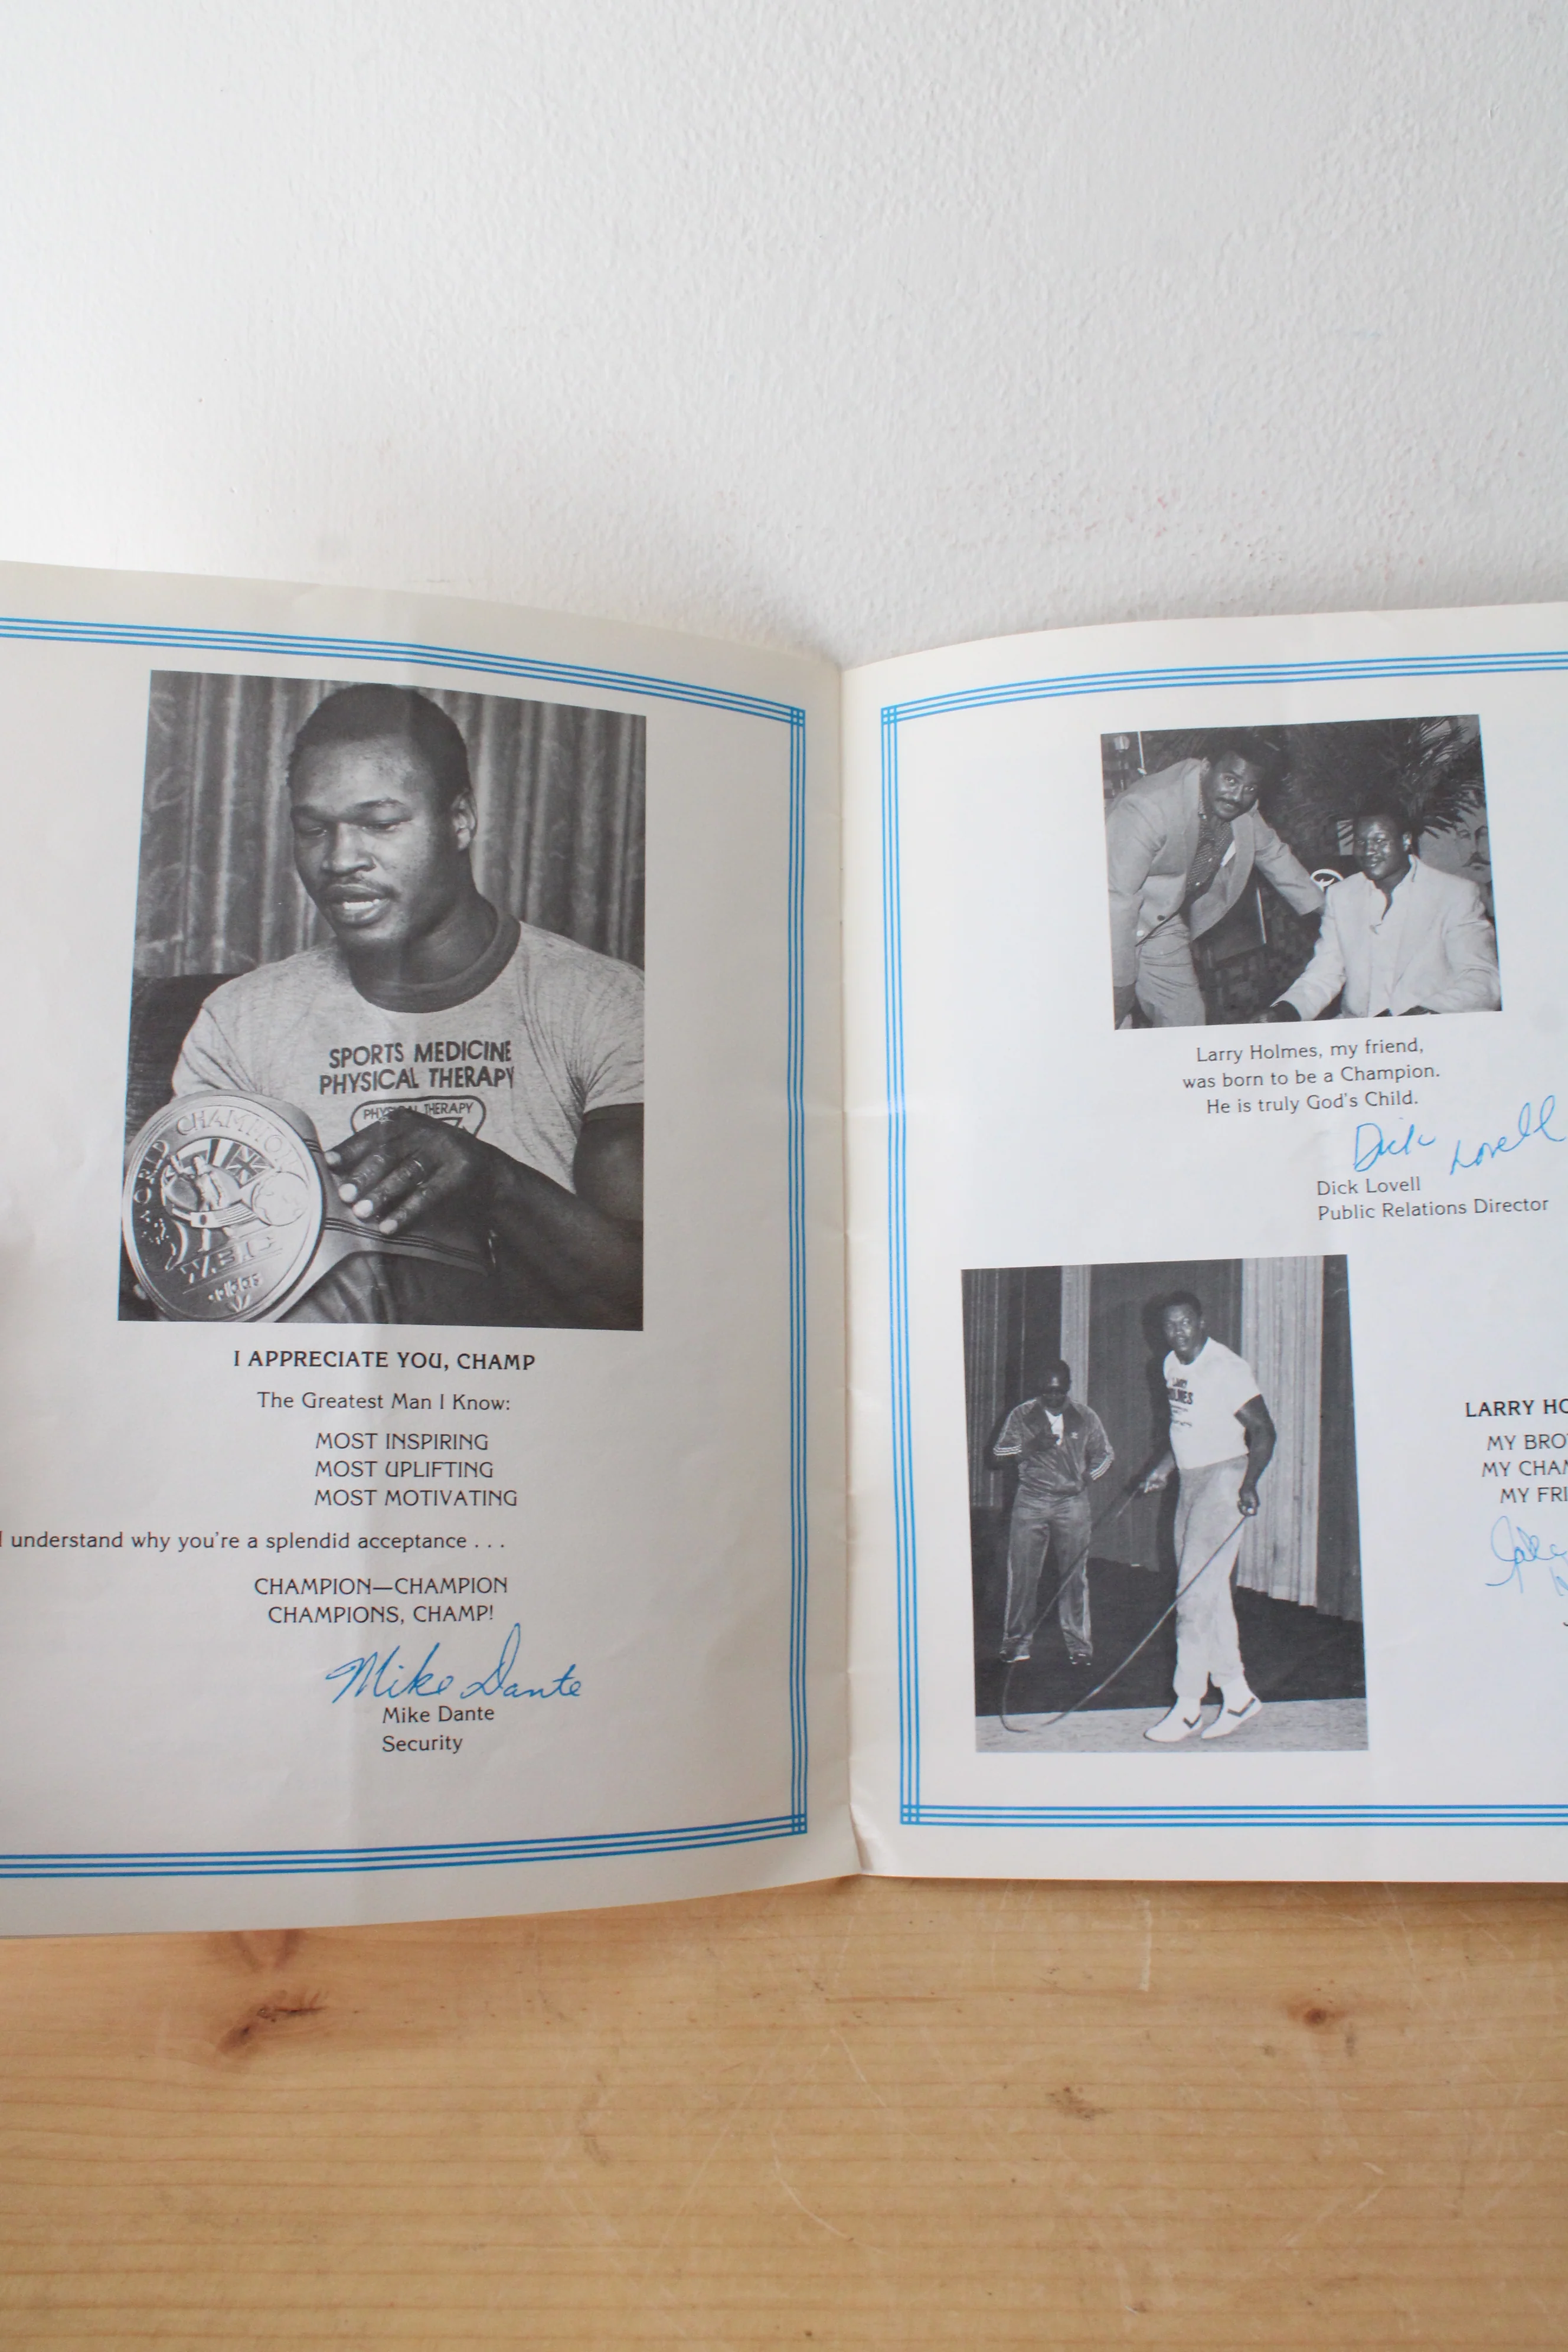 SPORTS MEDICINE
PHYSICAL THERAPY
WORLD CHAMPION
I APPRECIATE YOU, CHAMP
The Greatest Man I Know:
MOST INSPIRING
MOST UPLIFTING
MOST MOTIVATING
I understand why you're a splendid acceptance . . .
CHAMPION—CHAMPION
CHAMPIONS, CHAMP!
Mike Dante
Mike Dante
Security
Larry Holmes, my friend,
was born to be a Champion.
He is truly God's Child.
Dick Lovell
Dick Lovell
Public Relations Director
LARRY HO
MY BRO
MY CHA
MY FRI